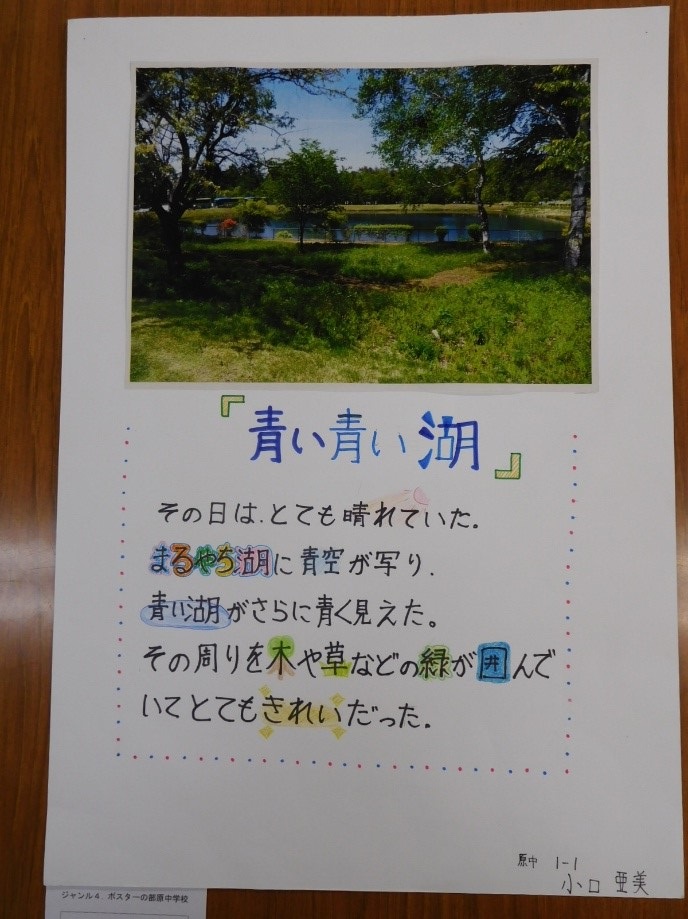 『青い青い湖』
その日は、とても晴れていた。
まるやち湖に青空が写り、
青い湖がさらに青く見えた。
その周りを木や草などの緑が囲んで
いてとてもきれいだった。
原中 1-1
小口 亜美
ジャンル4 ポスターの部原中学校